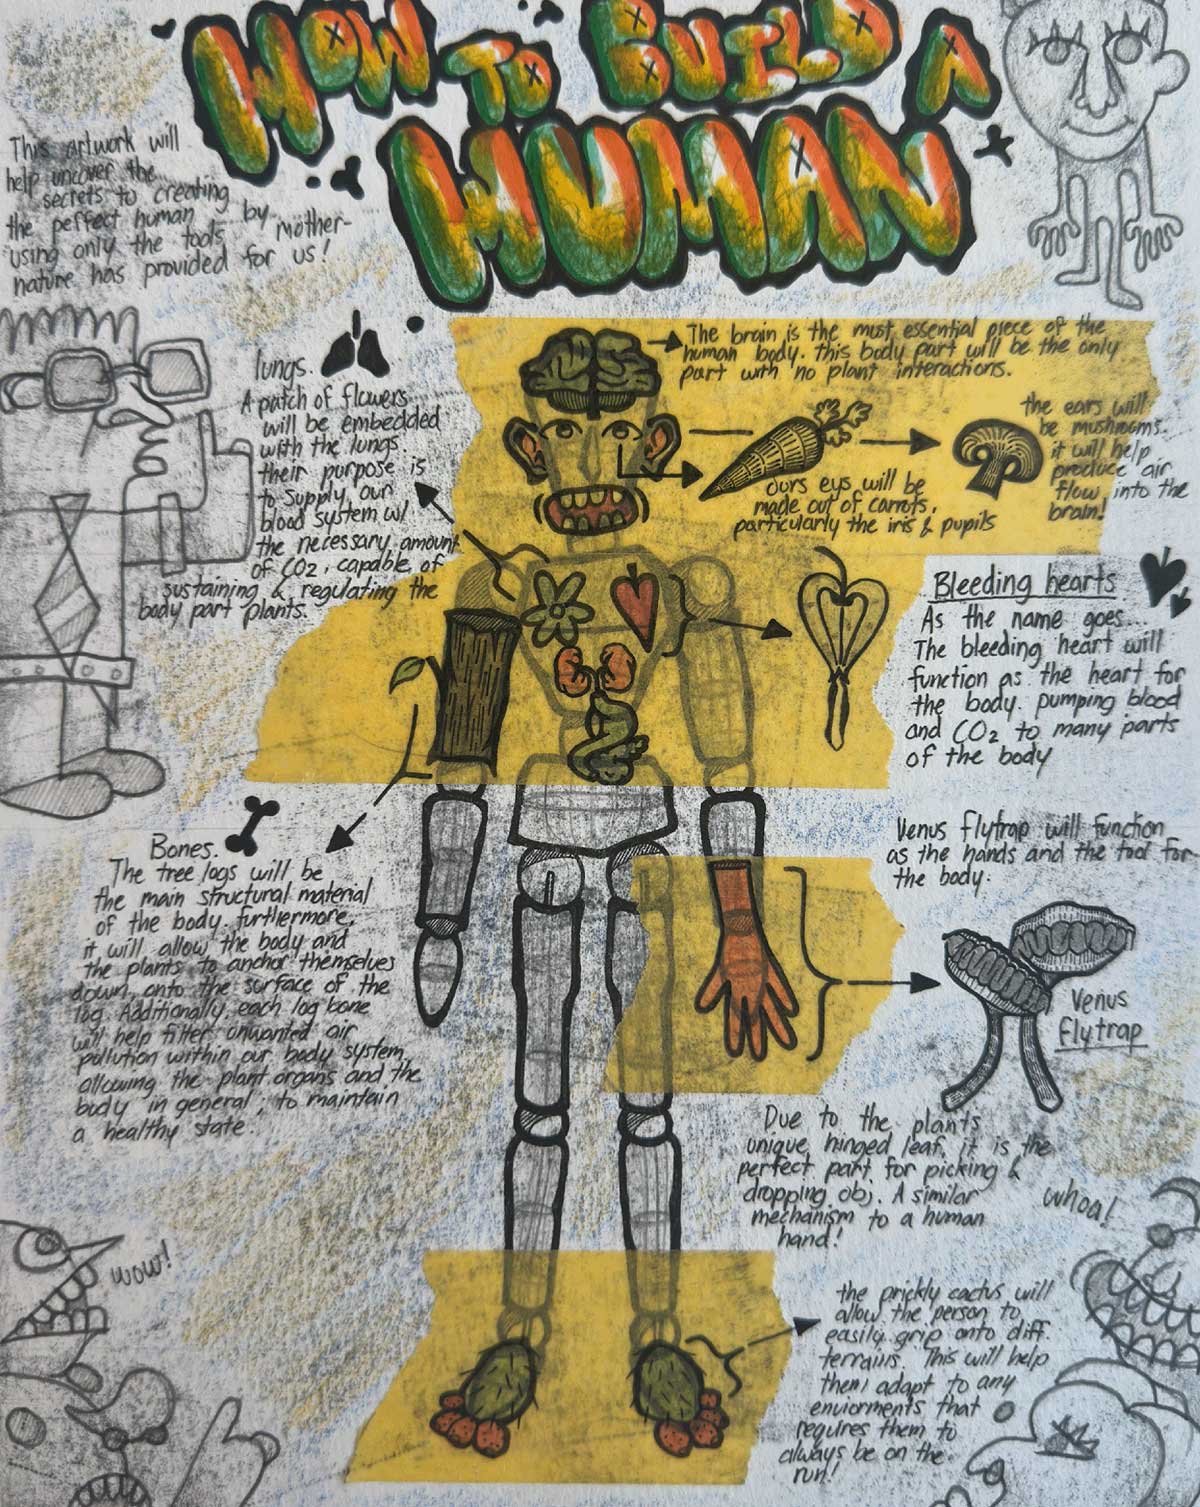 HOW TO BUILD A
HUMAN
This artwork will
help uncover the
secrets to creating
the perfect human by
using only the tools mother-
nature has provided for us!
The brain is the most essential piece of the
human body. this body part will be the only
part with no plant interactions.
lungs.
A patch of flowers
will be embedded
with the lungs
their purpose is
to supply our
blood system w/
the necessary amount
of CO2, capable of
sustaining & regulating the
body part plants.
ours eys will be
made out of carrots,
particularly the iris & pupils
the ears will
be mushrooms.
it will help
produce air
flow into the
brain!
Bleeding hearts
As the name goes...
The bleeding heart will
function as the heart for
the body. pumping blood
and CO2 to many parts
of the body
Bones.
The tree logs will be
the main structural material
of the body. furthermore,
it will allow the body and
the plants to anchor themselves
down, onto the surface of the
log. Additionally, each log bone
will help filter unwanted air
pollution within our body system,
allowing the plant organs and the
body in general, to maintain
a healthy state.
Venus flytrap will function
as the hands and the tool for
the body.
Venus
flytrap
Due to the plants
unique hinged leaf, it is the
perfect part for picking &
dropping obj. A similar
mechanism to a human
hand!
whoa!
wow!
the prickly cactus will
allow the person to
easily grip onto diff.
terrains. This will help
them adapt to any
enviorments that
requires them to
always be on the
run!